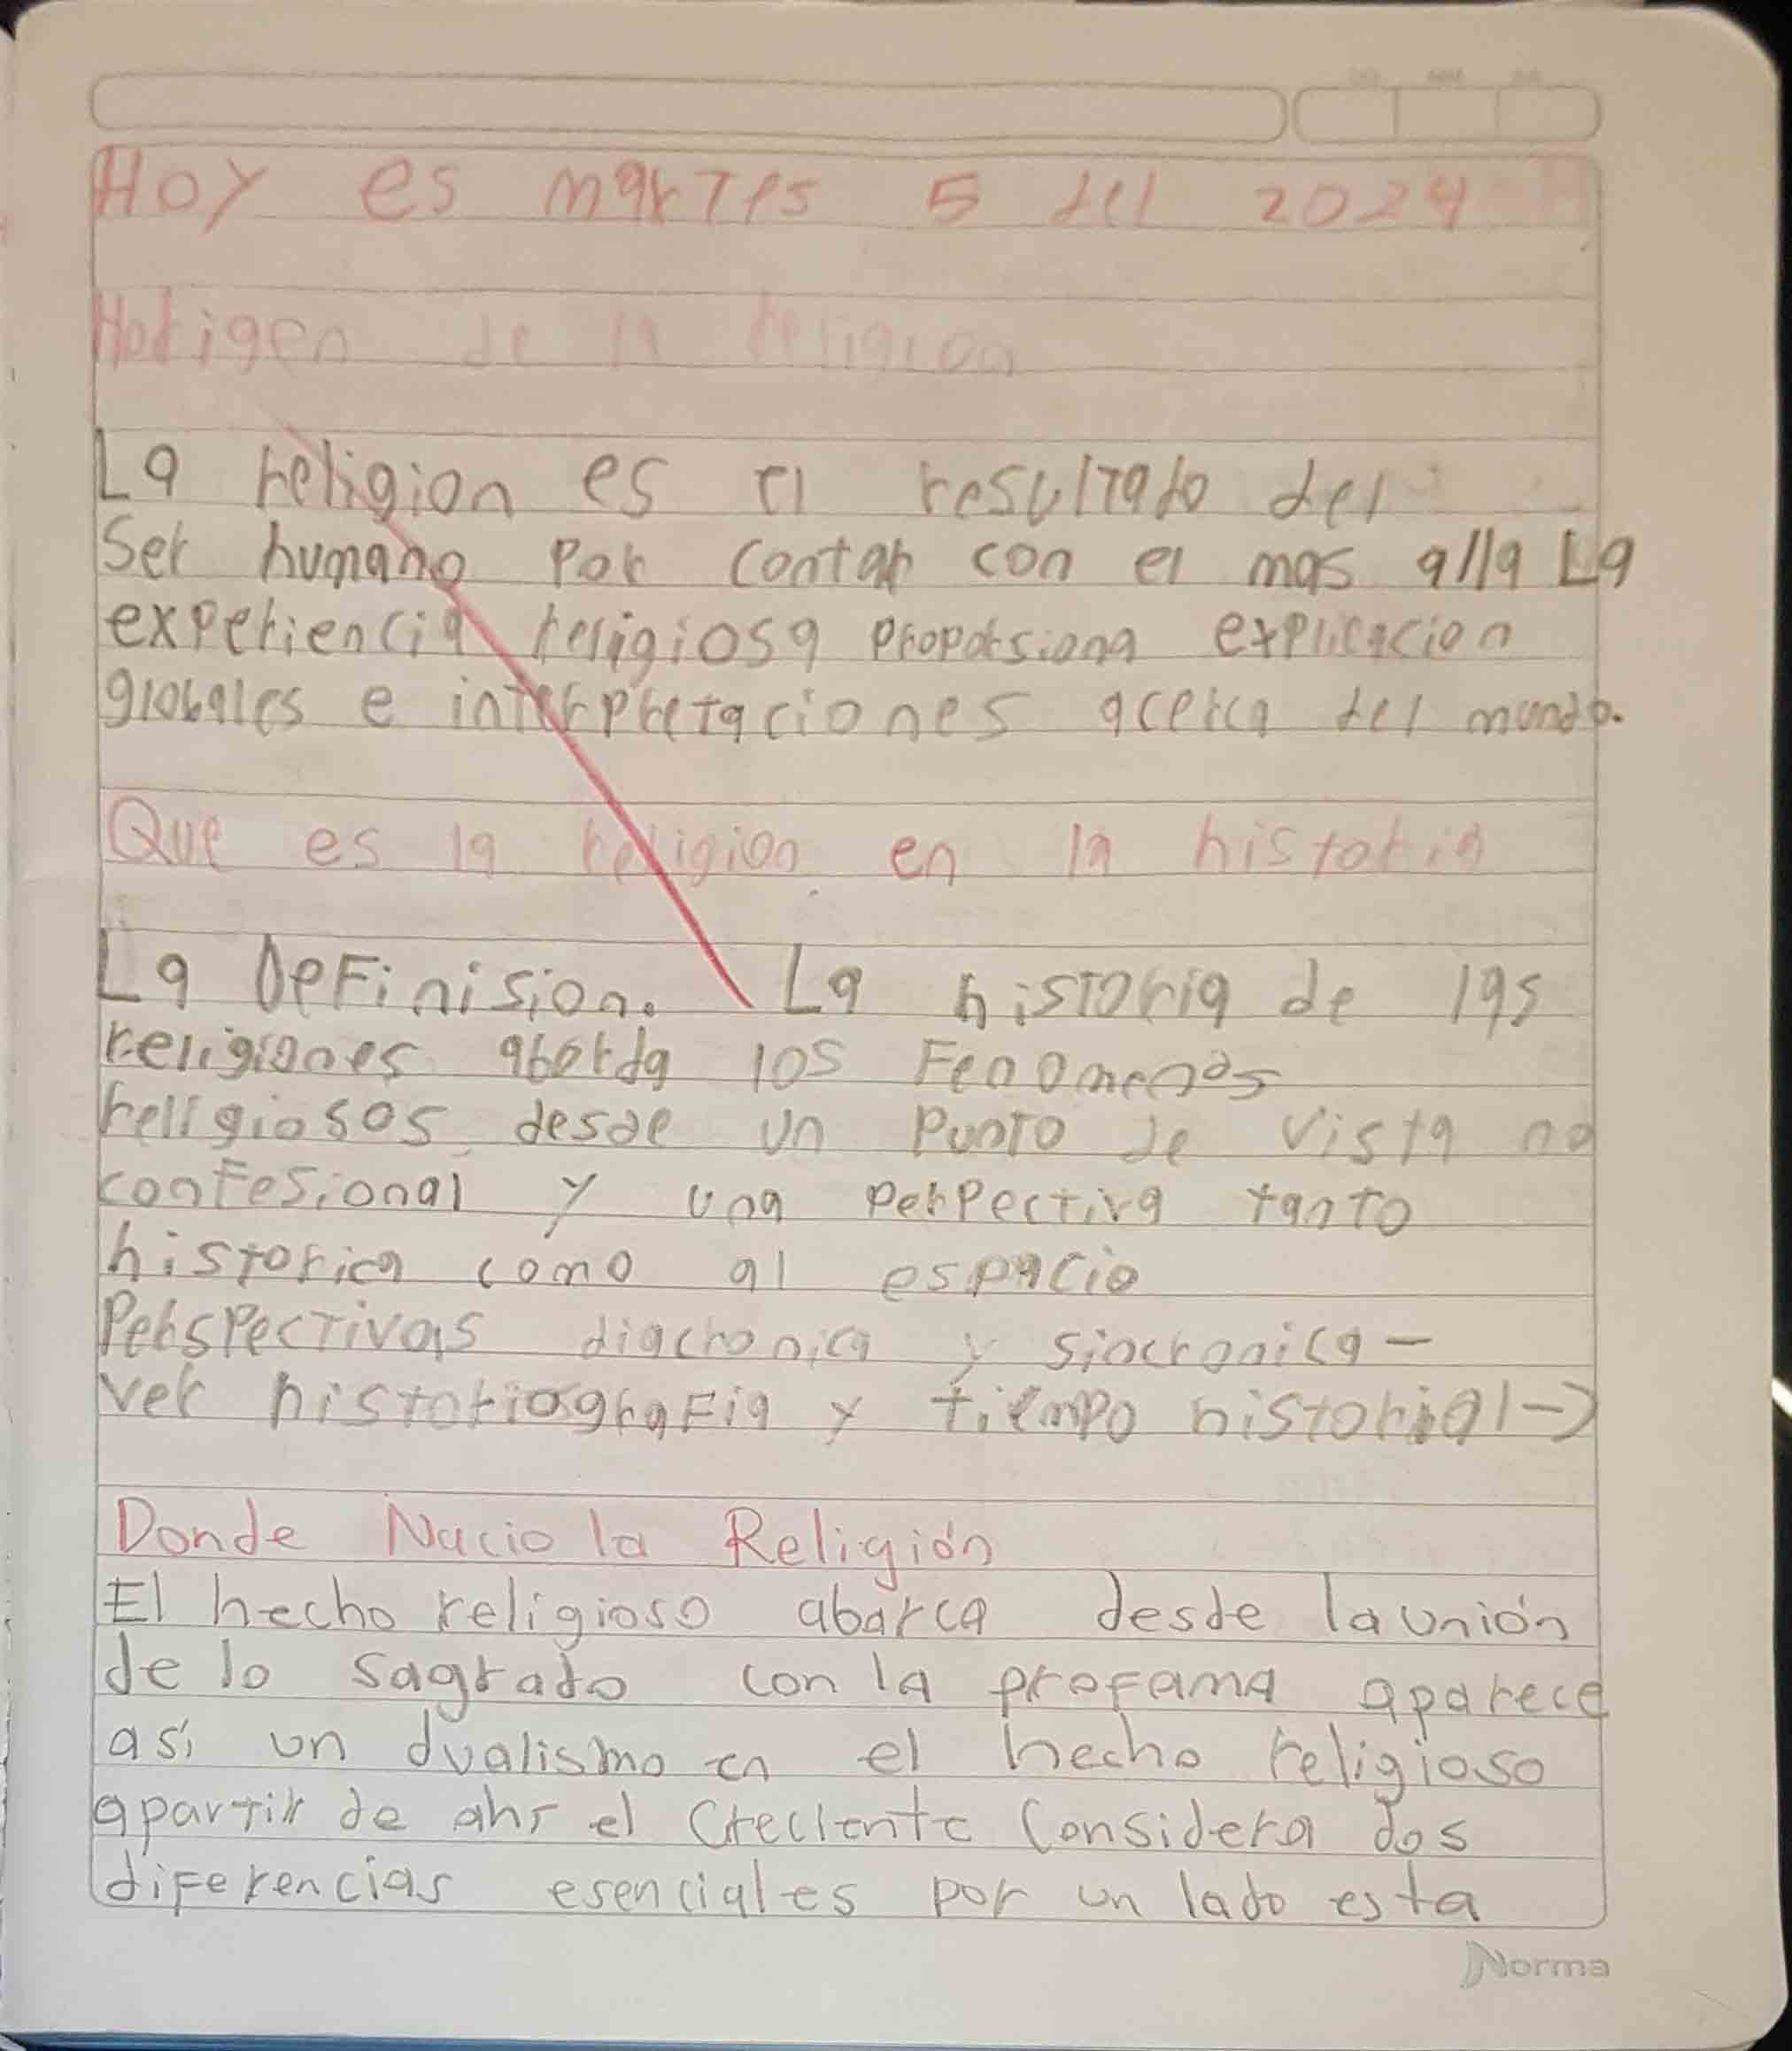 Hoy es martes 5 del 2024
Horigen de la religion
La religion es el resultado del
Ser humano por contar con el mas alla La
experiencia religiosa proporsiona explicacion
globales e interpretaciones acerca del mundo.
Que es la religion en la historia
La Definision. La historia de las
religiones aborda los Fenomenos
religiosos desde un punto de vista no
confesional y una perpectiva tanto
historica como al espacio
Perspectivas diacronica y sincronica -
ver historiografia y tiempo historial-)
Donde Nacio la Religión
El hecho religioso abarca desde la unión
de lo sagrado con la profama aparece
así un dualismo en el hecho religioso
apartir de ahí el Creciente Considera dos
diferencias esenciales por un lado esta
Norma